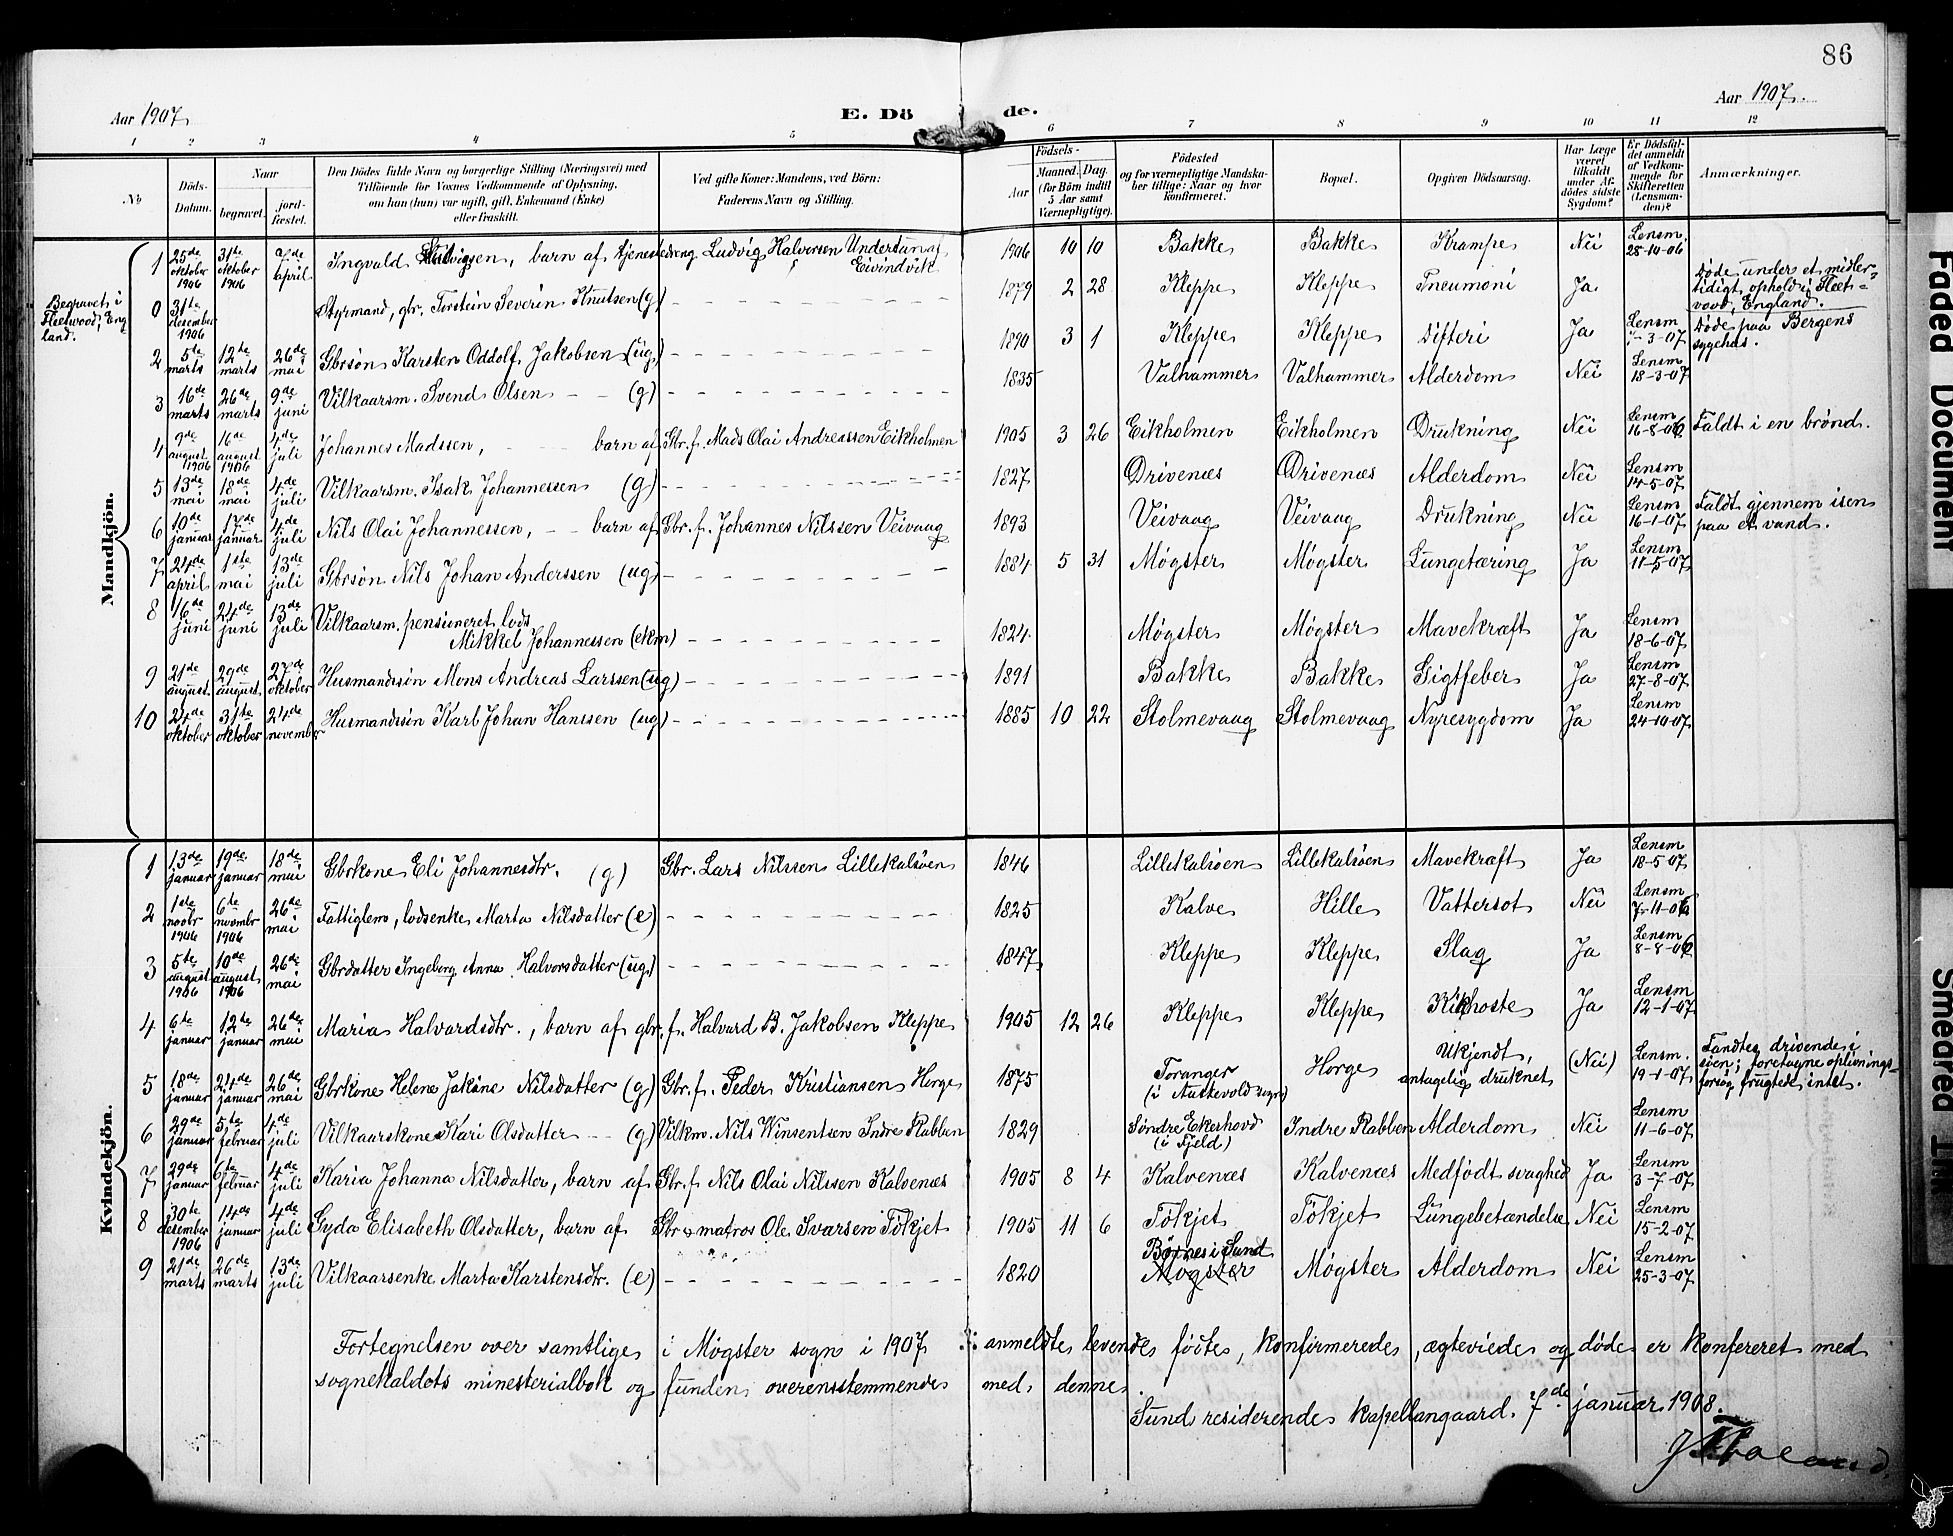 86
Aar 1907
E. Dö de.
Aar 1907.
1 2 3 4 5 6 7 8 9 10 11 12
No
Döds-Datum.
Naar
begravet.
jord-fæstet.
Den Dödes fulde Navn og borgerlige Stilling (Næringsvei) med
Tilföiende for Voxnes Vedkommende af Oplysning,
om han (hun) var ugift, gift, Enkemand (Enke)
eller fraskilt.
Ved gifte Koner: Mandens, ved Börn:
Faderens Navn og Stilling.
Födsels-
Aar
Maaned. Dag.
(for Börn indtil
5 Aar samt
Værnepligtige).
Födested
og for værnepligtige Mandska-
ber tillige: Naar og hvor
konfirmeret.
Bopæl.
Opgiven Dödsaarsag.
Har Læge
været
tilkaldt
under Af-
dödes sidste
Sygdom?
Er Dödsfal-
det anmeldt
af Vedkom-
mende for
Skifteretten
(Lensman-
den)?
Anmærkninger.
Mandkjön.
1 25de oktober 1906 31te oktober 1906 2de april Ingvald Ludvigsen, barn af tjenestedreng Ludvig Halvorsen Undertun af Eivindvik 1906 10 10 Bakke Bakke Krampe Nei Lensm. 28-10-06
Begravet i Fleetwood, England.
0 31te desember 1906 Styrmand, gbr. Torstein Severin Knutsen (g) 1879 2 28 Kleppe Kleppe Pneumoni Ja Døde under et midler-tidigt ophold i Fleet-wood, England.
2 5te marts 12te marts 26de mai Gbrsøn Karsten Oddolf Jakobsen (ug) 1890 3 1 Kleppe Kleppe Difteri Ja Lensm -3-07 Døde paa Bergens sygehus.
3 16de marts 26de marts 9de juni Vilkaarsm. Svend Olsen (g) 1835 Valhammer Valhammer Alderdom Nei Lensm 18-3-07
4 9de august 1906 16de august 1906 4de juli Johannes Madssen, barn af Gbr. f. Mads Olai Andreassen Eikholmen 1905 3 26 Eikholmen Eikholmen Drukning Nei Lensm 16-8-06 Faldt i en brønd.
5 13de mai 18de mai 4de juli Vilkaarsm. Isak Johannessen (g) 1827 Drivenæs Drivenæs Alderdom Nei Lensm 14-5-07
6 10de januar 17de januar 4de juli Nils Olai Johannessen, barn af Gbr. f. Johannes Nilssen Veivaag 1893 Veivaag Veivaag Drukning Nei Lensm 16-1-07 Faldt gjennem isen paa et vand.
7 24de april 1ste mai 13de juli Gbrsøn Nils Johan Anderssen (ug) 1884 5 31 Møgster Møgster Lungetæring Ja Lensm 11-5-07
8 16de juni 24de juni 13de juli Vilkaarsm. pensioneret lods Mikkel Johannessen (ekm) 1824 Møgster Møgster Mavekræft Ja Lensm 18-6-07
9 21de august 29de august 27de oktober Husmandssøn Mons Andreas Larssen (ug) 1891 Bakke Bakke Gigtfeber Ja Lensm 27-8-07
10 24de oktober 31te oktober 24de november Husmandssøn Karl Johan Hanssen (ug) 1885 10 22 Stolmevaag Stolmevaag Nyresygdom Ja Lensm 24-10-07
Kvindekjön.
1 13de januar 19de januar 18de mai Gbrkone Eli Johannesdtr. (g) Gbr. Lars Nilssen Lillekalsøen 1846 Lillekalsøen Lillekalsøen Mavekræft Ja Lensm 18-5-07
2 1ste novbr 1906 6te novembr 1906 26de mai Fattiglem, lodsenke Marta Nilsdatter (e) 1825 Kalve Hille Vattersot Nei Lensm 7-11-06
3 5te august 1906 10de august 1906 26de mai Gbrdatter Ingeborg Anna Halvorsdatter (ug) 1847 Kleppe Kleppe Slag Ja Lensm 8-8-06
4 6te januar 12te januar 26de mai Maria Halvardsdtr., barn af gbr. f. Halvard B. Jakobsen Kleppe 1905 12 26 Kleppe Kleppe Kikhoste Ja Lensm 12-1-07
5 18de januar 24de januar 26de mai Gbrkone Helene Jakine Nilsdatter (g) Gbr. f. Peder Kristiansen Horge 1875 Toranger (i Austevold sogn) Horge Ukjendt, antagelig druknet (Nei) Lensm. 19-1-07 Fandtes drivende i søen; foretagne oplivnings-forsøg frugtede intet.
6 29de januar 5te februar 4de juli Vilkaarskone Kari Olsdatter (g) Vilkm. Nils Winsentsen Indre Rabben 1829 Søndre Ekerhovd (i Fjeld) Indre Rabben Alderdom Nei Lensm 11-6-07
7 29de januar 6te februar 4de juli Karia Johanna Nilsdatter, barn af Gbr. f. Nils Olai Nilssen Kalvenæs 1905 8 4 Kalvenæs Kalvenæs Medfødt svaghed Ja Lensm 3-7-07
8 30te desember 1906 14de januar 4de juli Gyda Elisabeth Olsdatter, barn af Gbr & matros Ole Ivarsen Tökjet 1905 11 6 Tökjet Tökjet Lungebetændelse Nei Lensm 15-2-07
9 21de marts 26de marts 13de juli Vilkaarsenke Marta Karstensdtr. (e) 1820 Børnes i Sund Møgster Møgster Alderdom Nei Lensm 25-3-07
Fortegnelsen over samtlige i Møgster sogn i 1907 anmeldte levende fødte, konfirmerede, ægteviede og døde er konfereret med
sognekaldets ministerialbok og funden overensstemmende med denne.
Sund residerende kapellangaard, 7de januar 1908.
Faded Document
Smeared Ink